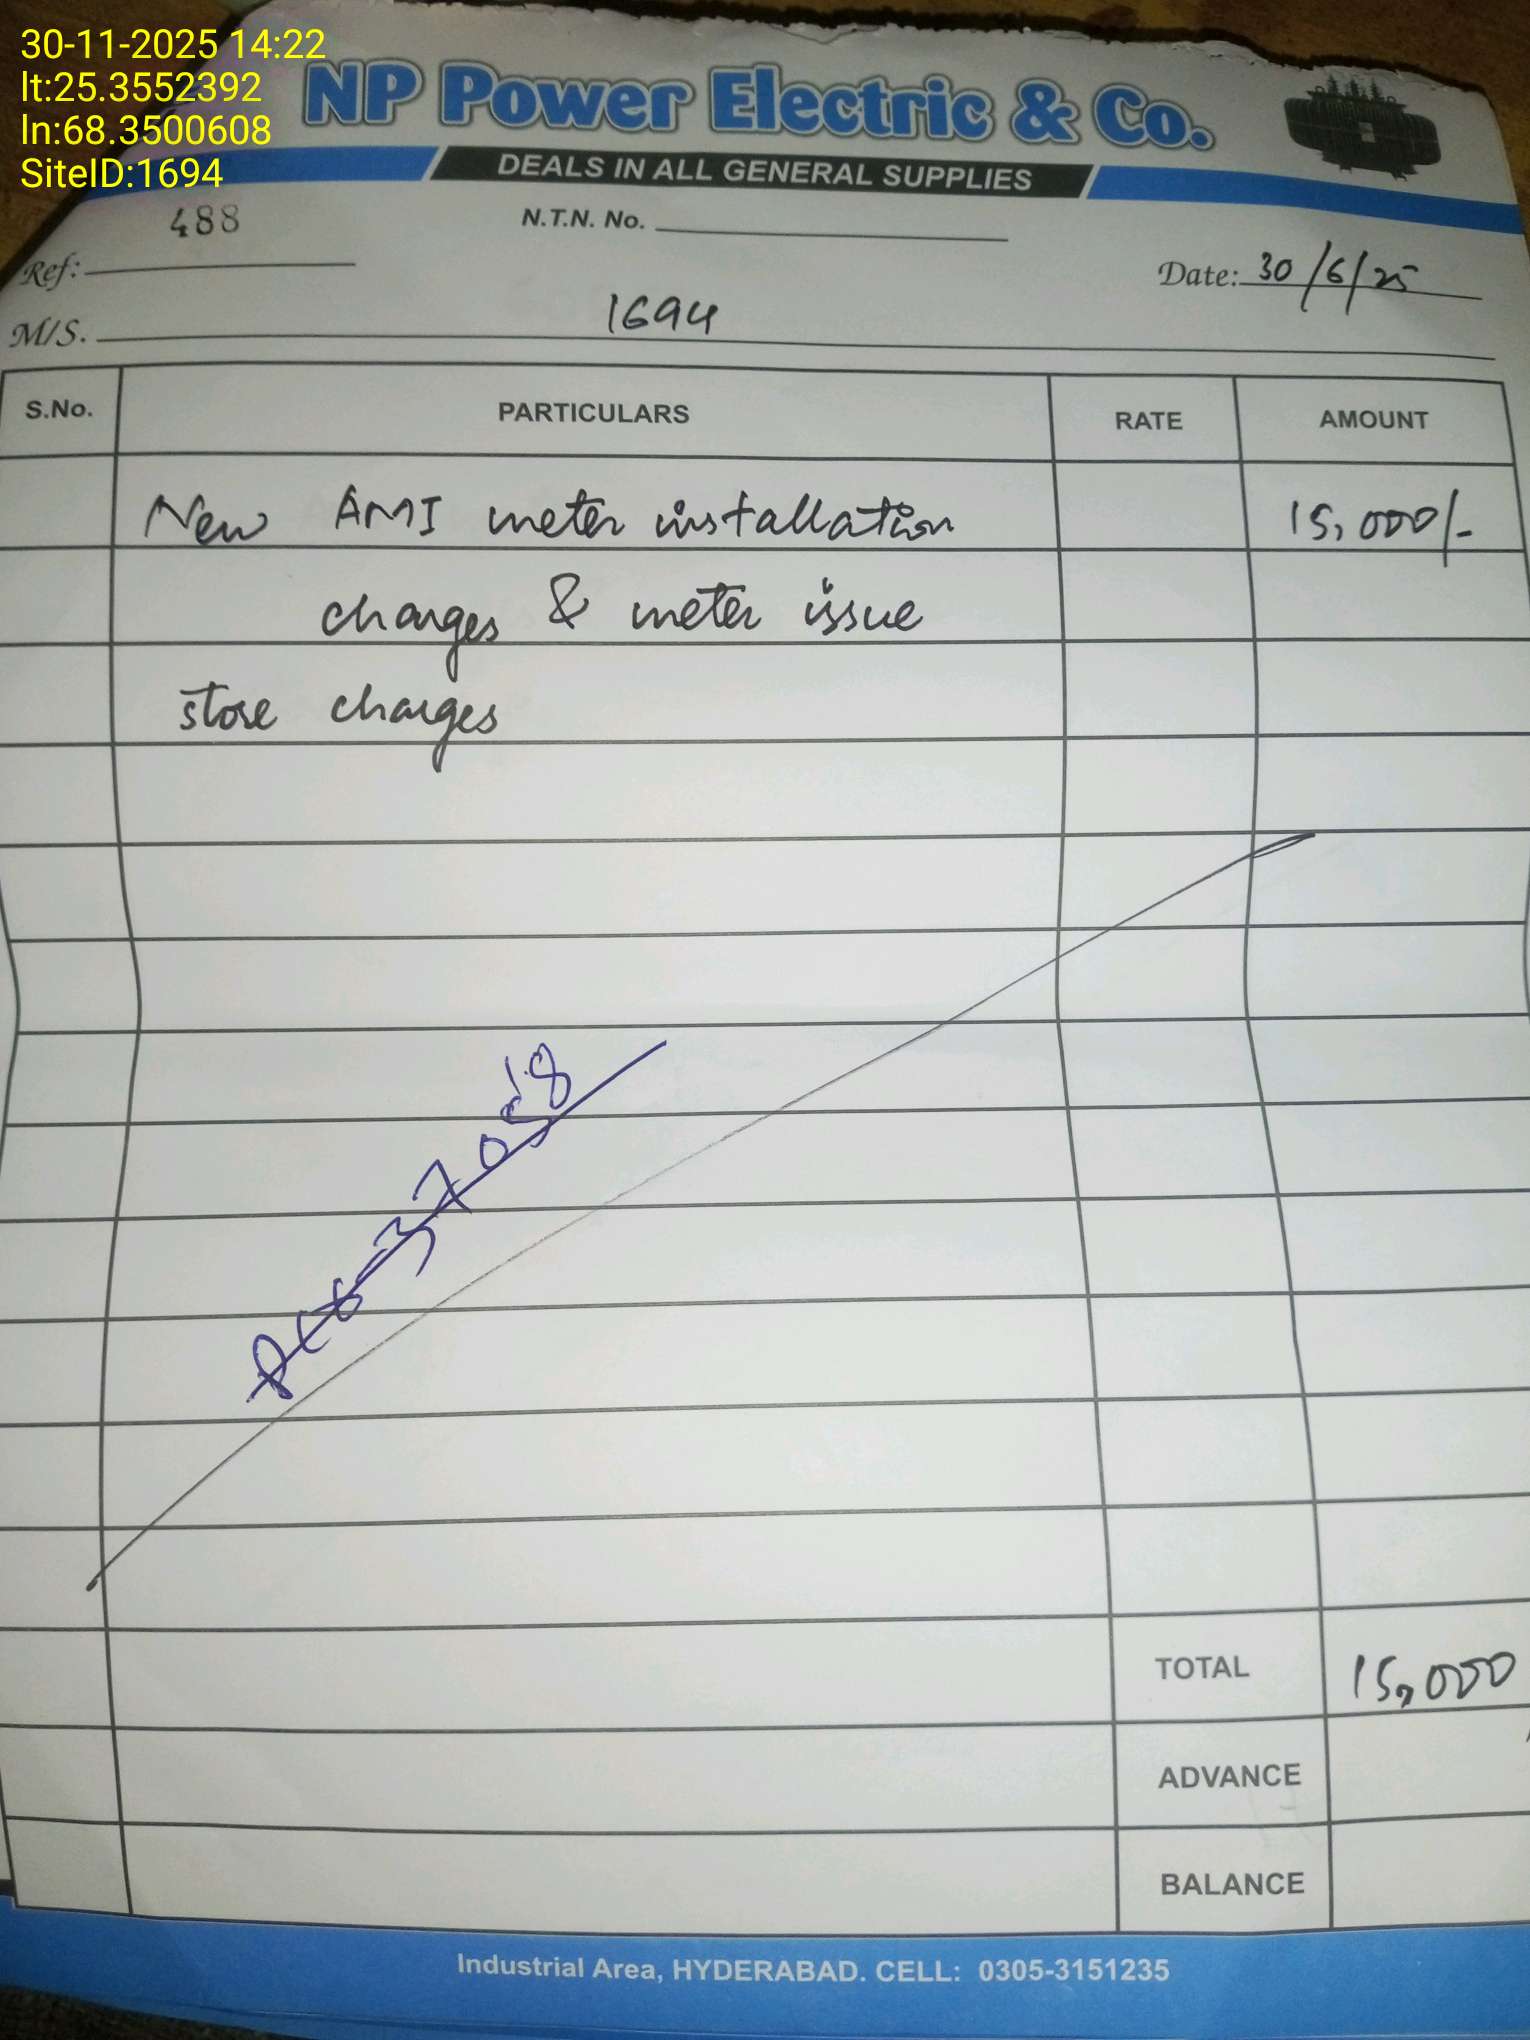 30-11-2025 14:22
lt:25.3552392
ln:68.3500608
SiteID:1694
NP Power Electric & Co.
DEALS IN ALL GENERAL SUPPLIES
488
N.T.N. No.
Ref:
Date: 30/6/25
M/S. 1694
S.No. PARTICULARS RATE AMOUNT
New AMI meter installation 15,000/-
charges & meter issue
store charges
TOTAL 15,000
ADVANCE
BALANCE
Industrial Area, HYDERABAD. CELL: 0305-3151235